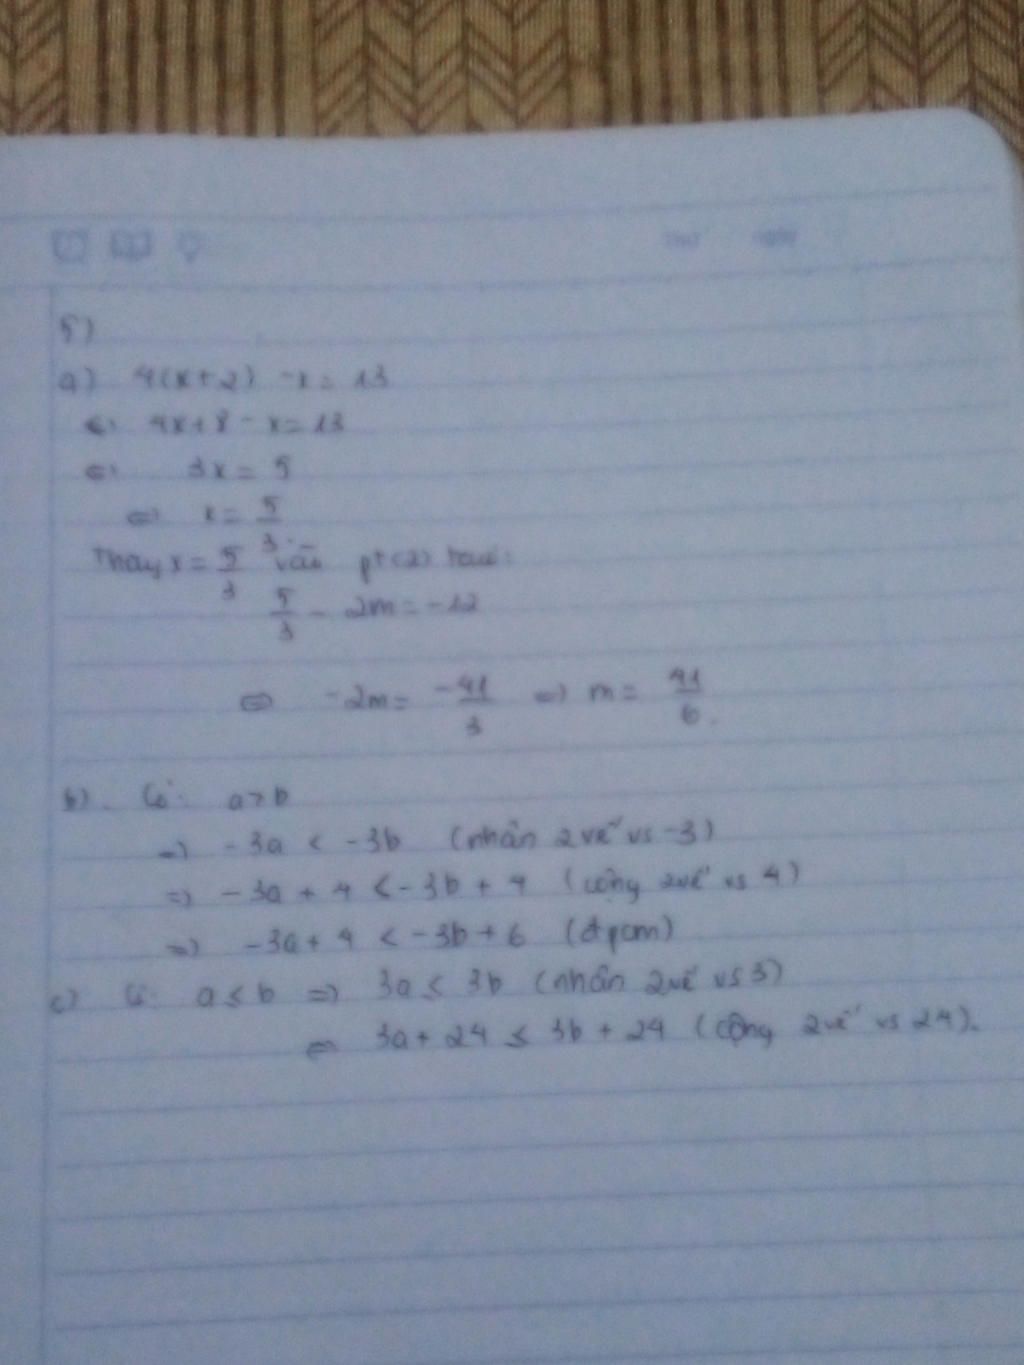 5)
a) 4(x+2) - x = 13
⇔ 4x + 8 - x = 13
⇔ 3x = 5
⇔ x = 5/3
Thay x = 5/3 vào pt (2)
5/3 - 2m = -12
⇔ -2m = -41/3 ⇔ m = 41/6.
b). Có: a > b
⇒ -3a < -3b (nhân 2 vế vs -3)
⇒ -3a + 4 < -3b + 4 (cộng 2 vế vs 4)
⇒ -3a + 4 < -3b + 6 (đpcm)
c) Có: a ≤ b ⇒ 3a ≤ 3b (nhân 2 vế vs 3)
⇔ 3a + 24 ≤ 3b + 24 (cộng 2 vế vs 24).